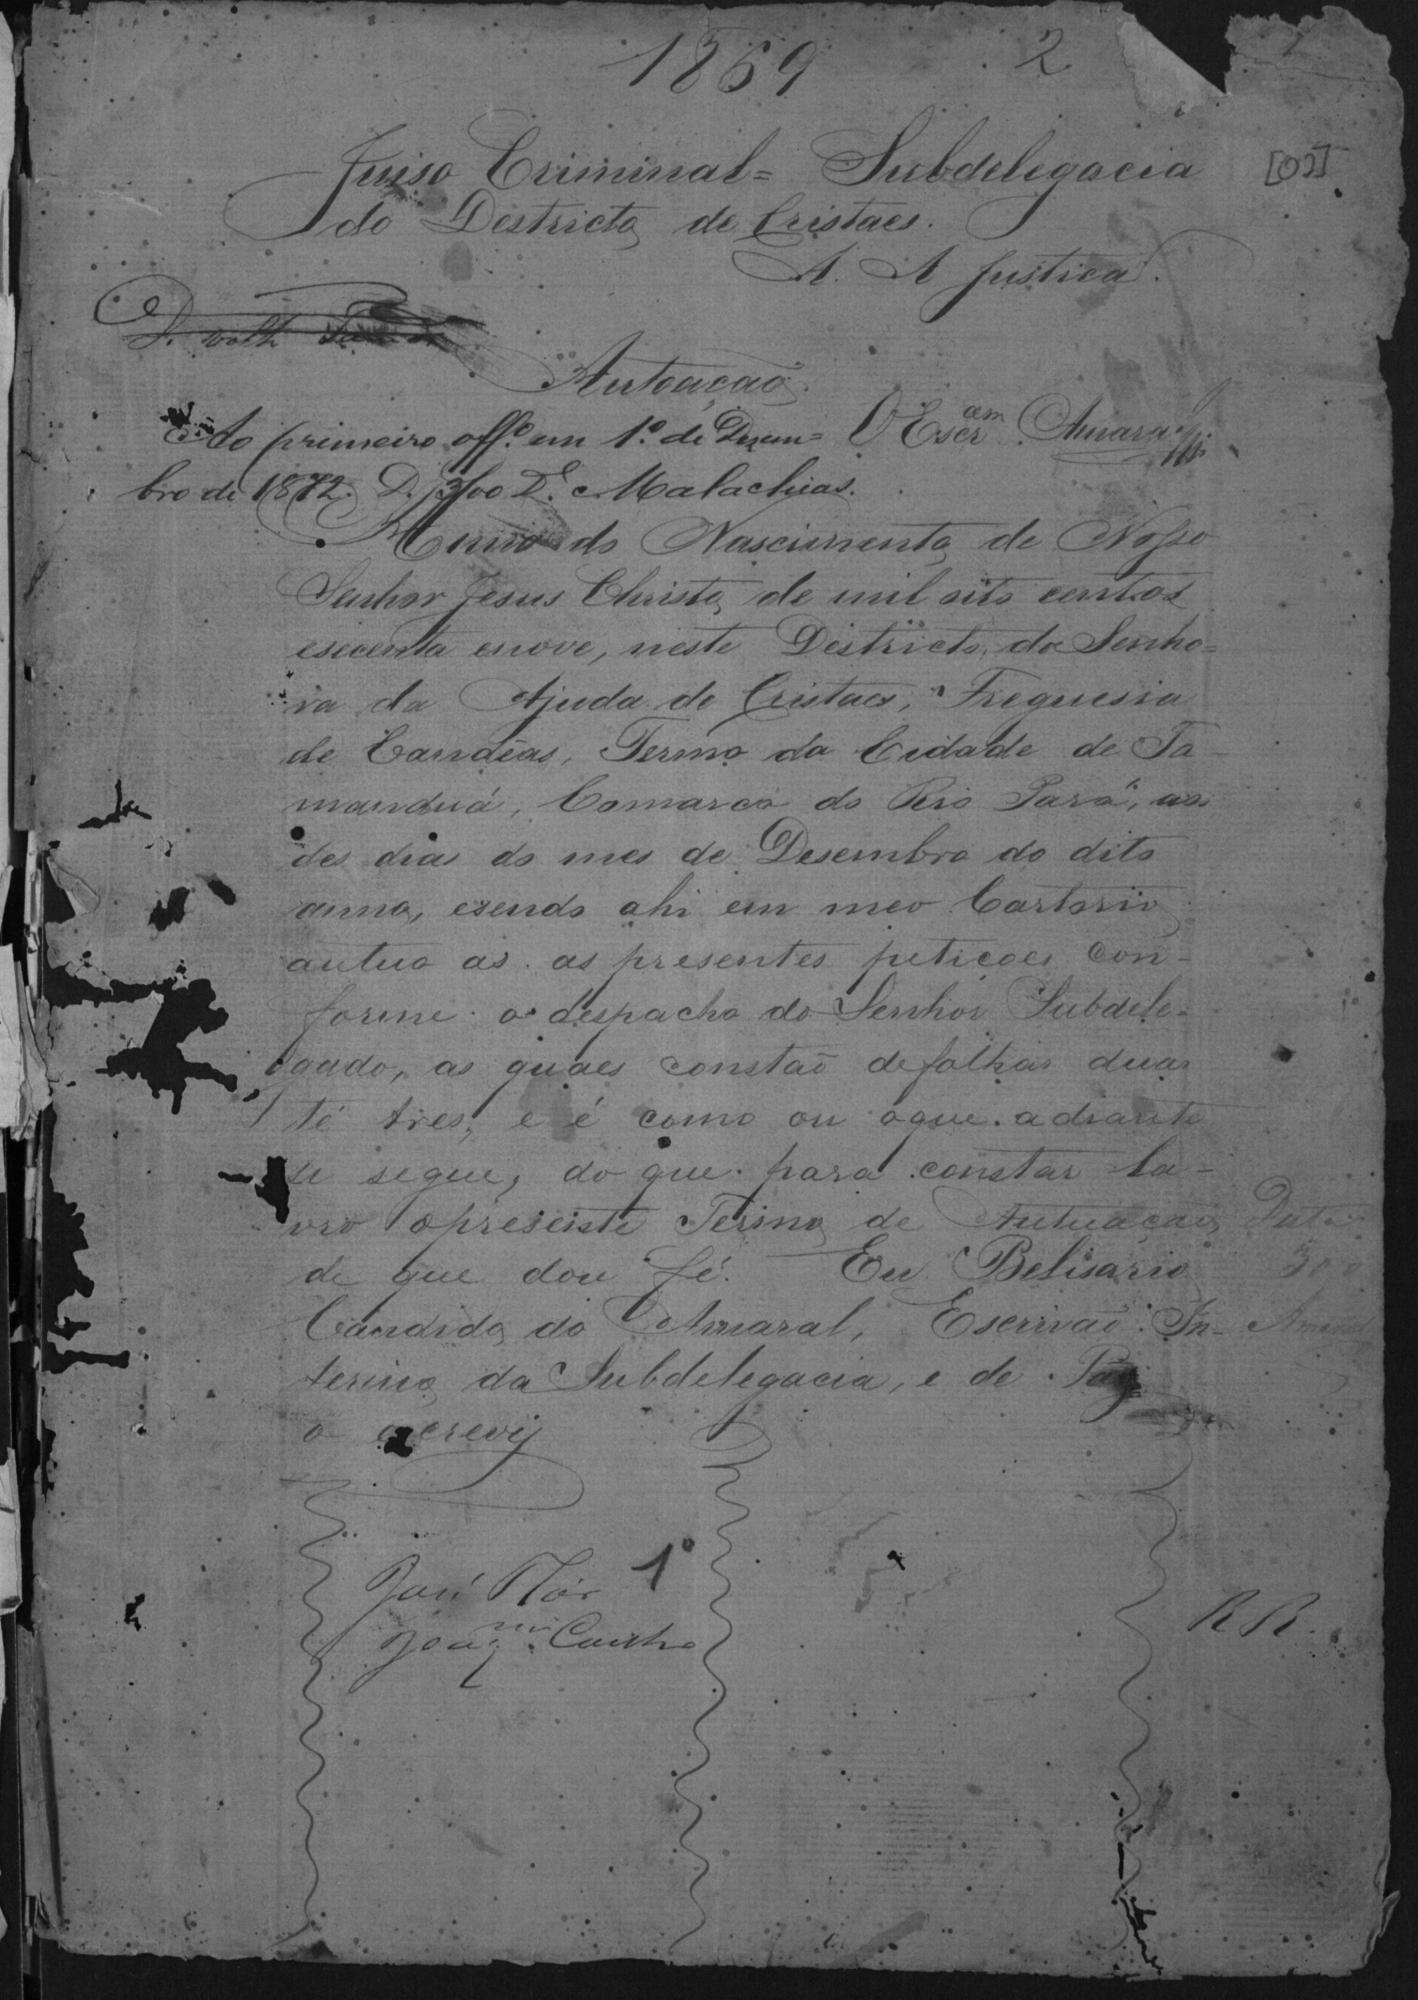 1869 2
Juiso Criminal= Subdelegacia [02]
do Destricto de Cristaes.
A. A Justica.
D.
Autoação.
Ao primeiro offº em 1º de Dezem= O Escram Amaral
bro de 1872. D. 3$00 Dr. Malachias.
Anno do Nascimento de Nosso
Senhor Jesus Christo de mil oito centos
esecenta enove, neste Districto da Senho=
ra da Ajuda de Cristaes, Freguesia
de Candêas, Termo da Cidade de Ta-
manduá, Comarca do Rio Pará, aos
des dias do mes de Desembro do dito
anno, esendo ahi em meo Cartorio
autuo as as presentes petiçoes con-
forme o despacho do Senhor Subdele-
gado, as quaes constaõ defolhas duas
té tres, e é como ou oque adiante
se segue, do que para constar la-
vro opreseiste Termo de Autuaçaõ Aut
de que dou fé. Eu Belisario 300
Candido do Amaral, Escrivaõ In- Amaral
terino da Subdelegacia, e de Paz
o escrevij
José Flór 1º
Joaqm. Cunha
RR.